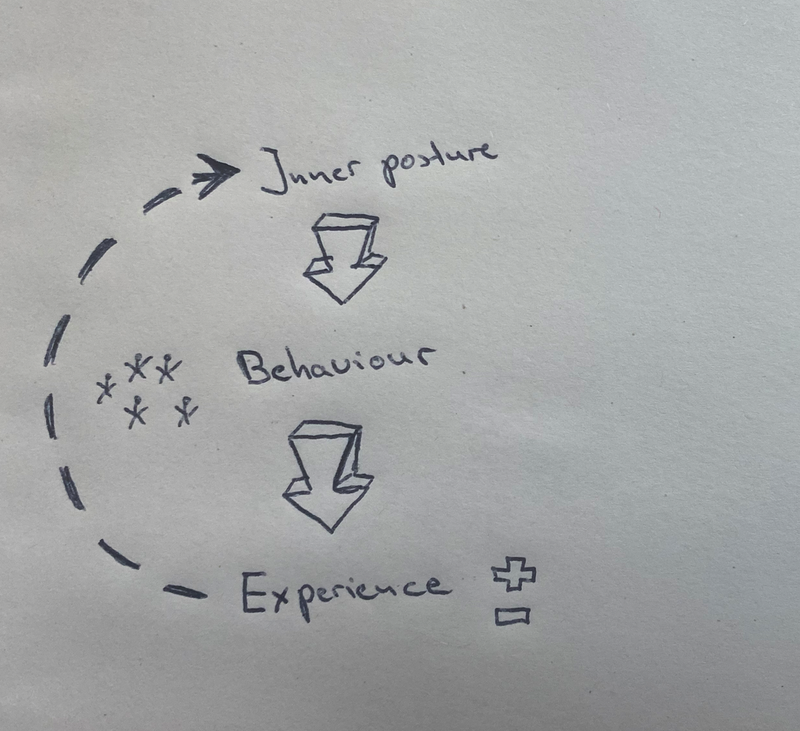 Inner posture
Behaviour
Experience